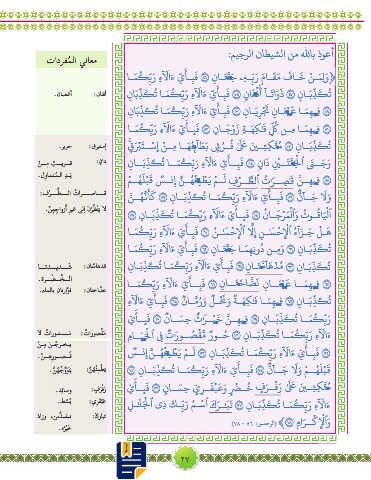 معاني المُفردات
أعوذ بالله من الشيطان الرجيم:
﴿وَلِمَنْ خَافَ مَقَامَ رَبِّهِۦ جَنَّتَانِ ٤٦ فَبِأَيِّ ءَالَآءِ رَبِّكُمَا
تُكَذِّبَانِ ٤٧ ذَوَاتَآ أَفْنَانٍ ٤٨ فَبِأَيِّ ءَالَآءِ رَبِّكُمَا تُكَذِّبَانِ
٤٩ فِيهِمَا عَيْنَانِ تَجْرِيَانِ ٥٠ فَبِأَيِّ ءَالَآءِ رَبِّكُمَا تُكَذِّبَانِ
٥١ فِيهِمَا مِن كُلِّ فَٰكِهَةٍ زَوْجَانِ ٥٢ فَبِأَيِّ ءَالَآءِ رَبِّكُمَا
تُكَذِّبَانِ ٥٣ مُتَّكِـِٔينَ عَلَىٰ فُرُشٍۭ بَطَآئِنُهَا مِنْ إِسْتَبْرَقٍ
وَجَنَى ٱلْجَنَّتَيْنِ دَانٍ ٥٤ فَبِأَيِّ ءَالَآءِ رَبِّكُمَا تُكَذِّبَانِ
٥٥ فِيهِنَّ قَٰصِرَٰتُ ٱلطَّرْفِ لَمْ يَطْمِثْهُنَّ إِنسٌ قَبْلَهُمْ
وَلَا جَآنٌّ ٥٦ فَبِأَيِّ ءَالَآءِ رَبِّكُمَا تُكَذِّبَانِ ٥٧ كَأَنَّهُنَّ
ٱلْيَاقُوتُ وَٱلْمَرْجَانُ ٥٨ فَبِأَيِّ ءَالَآءِ رَبِّكُمَا تُكَذِّبَانِ ٥٩
هَلْ جَزَآءُ ٱلْإِحْسَٰنِ إِلَّا ٱلْإِحْسَٰنُ ٦٠ فَبِأَيِّ ءَالَآءِ رَبِّكُمَا
تُكَذِّبَانِ ٦١ وَمِن دُونِهِمَا جَنَّتَانِ ٦٢ فَبِأَيِّ ءَالَآءِ رَبِّكُمَا
تُكَذِّبَانِ ٦٣ مُدْهَآمَّتَانِ ٦٤ فَبِأَيِّ ءَالَآءِ رَبِّكُمَا تُكَذِّبَانِ
٦٥ فِيهِمَا عَيْنَانِ نَضَّاخَتَانِ ٦٦ فَبِأَيِّ ءَالَآءِ رَبِّكُمَا
تُكَذِّبَانِ ٦٧ فِيهِمَا فَٰكِهَةٌ وَنَخْلٌ وَرُمَّانٌ ٦٨ فَبِأَيِّ ءَالَآءِ
رَبِّكُمَا تُكَذِّبَانِ ٦٩ فِيهِنَّ خَيْرَٰتٌ حِسَانٌ ٧٠ فَبِأَيِّ
ءَالَآءِ رَبِّكُمَا تُكَذِّبَانِ ٧١ حُورٌ مَّقْصُورَٰتٌ فِي ٱلْخِيَامِ
٧٢ فَبِأَيِّ ءَالَآءِ رَبِّكُمَا تُكَذِّبَانِ ٧٣ لَمْ يَطْمِثْهُنَّ إِنسٌ
قَبْلَهُمْ وَلَا جَآنٌّ ٧٤ فَبِأَيِّ ءَالَآءِ رَبِّكُمَا تُكَذِّبَانِ ٧٥
مُتَّكِـِٔينَ عَلَىٰ رَفْرَفٍ خُضْرٍ وَعَبْقَرِيٍّ حِسَانٍ ٧٦ فَبِأَيِّ
ءَالَآءِ رَبِّكُمَا تُكَذِّبَانِ ٧٧ تَبَٰرَكَ ٱسْمُ رَبِّكَ ذِى ٱلْجَلَٰلِ
وَٱلْإِكْرَامِ ٧٨﴾ (الرحمن: ٤٦ - ٧٨)
أفنان: أغصان.
إستبرق: حرير.
دانٍ: قريب من
يَدِ المُتناوِل.
قاصرات الطَّرف:
لا يَنْظُرْنَ إلى غير أزواجِهِنَّ.
مُدهامَّتان: شديدتا
الخُضرة.
نضّاختان: فوّارتان بالماء.
مَقْصورات: مستورات لا
يخرجْنَ مِنْ
قُصورِهِنَّ.
رَفْرَف: وسائد.
عَبْقَرِيّ: بُسُط.
٢٧